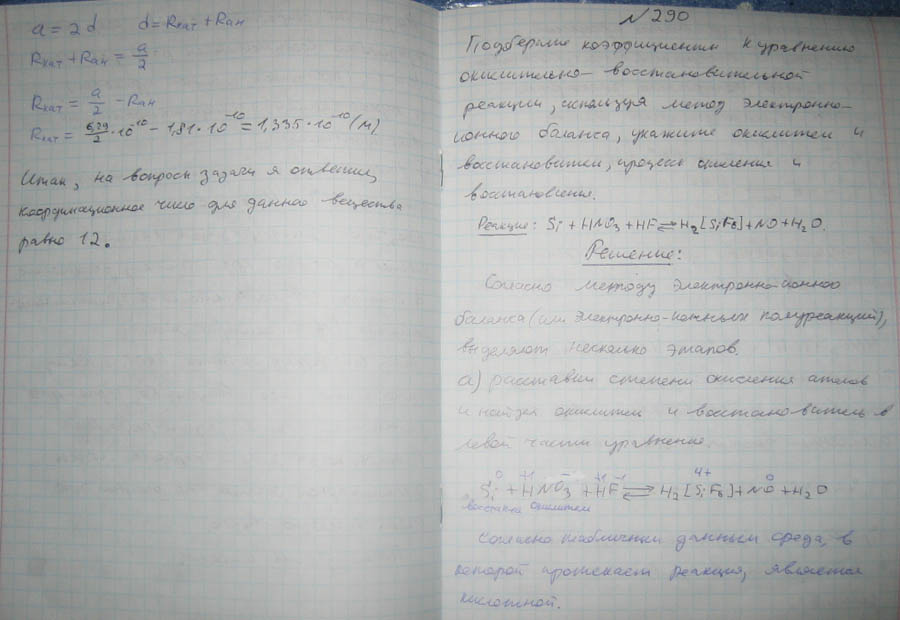 a = 2d d = Rкат + Rан
Rкат + Rан = a/2
Rкат = a/2 - Rан
Rкат = 6,29/2 · 10⁻¹⁰ - 1,81 · 10⁻¹⁰ = 1,335 · 10⁻¹⁰ (м)
Итак, на вопросы задачи я ответил,
координационное число для данного вещества
равно 12.
№290
Подберите коэффициенты к уравнению
окислительно-восстановительной
реакции, используя метод электронно-
ионного баланса, укажите окислитель и
восстановитель, процессы окисления и
восстановления.
Реакция: Si + HNO₃ + HF ⇌ H₂[SiF₆] + NO + H₂O.
Решение:
Согласно методу электронно-ионного
баланса (или электронно-ионных полуреакций),
выделяют несколько этапов.
а) расставим степени окисления атомов
и найдём окислитель и восстановитель в
левой части уравнения.
0 +1 − +1 −1 4+ 0
Si + HNO₃ + HF ⇌ H₂[SiF₆] + NO + H₂O
восстан. окислитель
Согласно табличным данным среда, в
которой протекает реакция, является
кислотной.